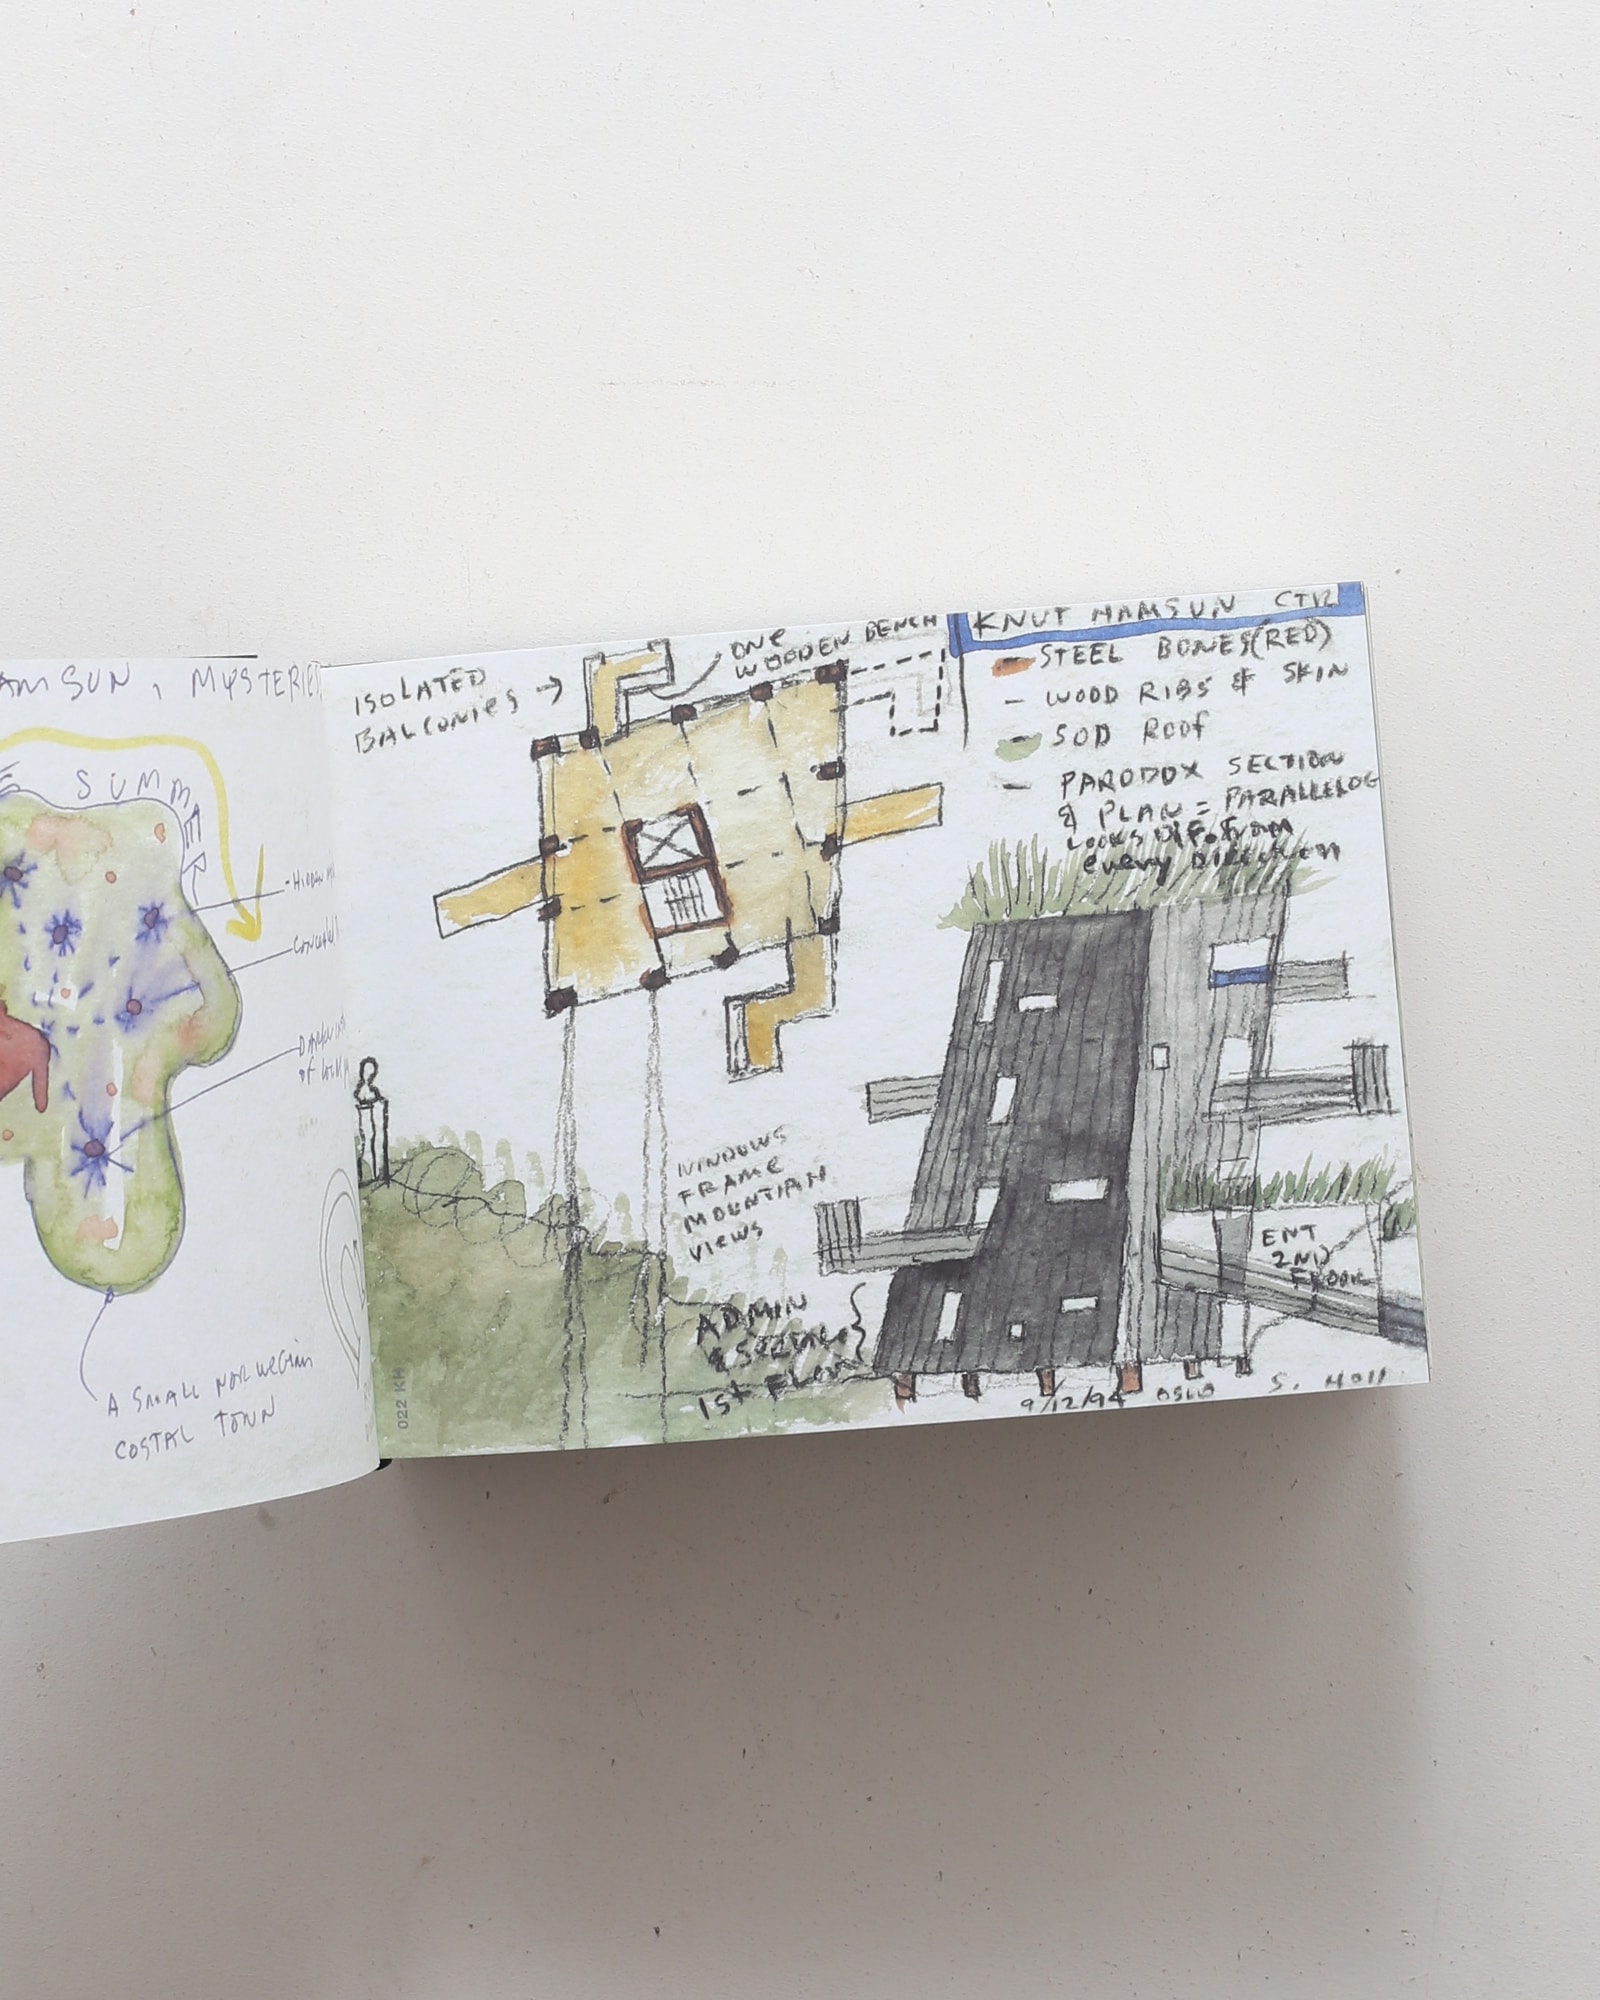 AMSUN, MYSTERIE
SUMMER
A SMALL NORWEGIAN
COSTAL TOWN
ISOLATED
BALCONIES →
ONE
WOODEN BENCH
KNUT HAMSUN CTR
STEEL BONES (RED)
- WOOD RIBS & SKIN
SOD ROOF
- PARODOX SECTION
& PLAN = PARALLELOG
LOOKS DIF. FROM
every DIRECTION
WINDOWS
FRAME
MOUNTIAN
VIEWS
ADMIN
& SERVICE
1st FLOOR
ENT
2ND
FLOOR
9/12/94 OSLO S. HOLL
022 KH